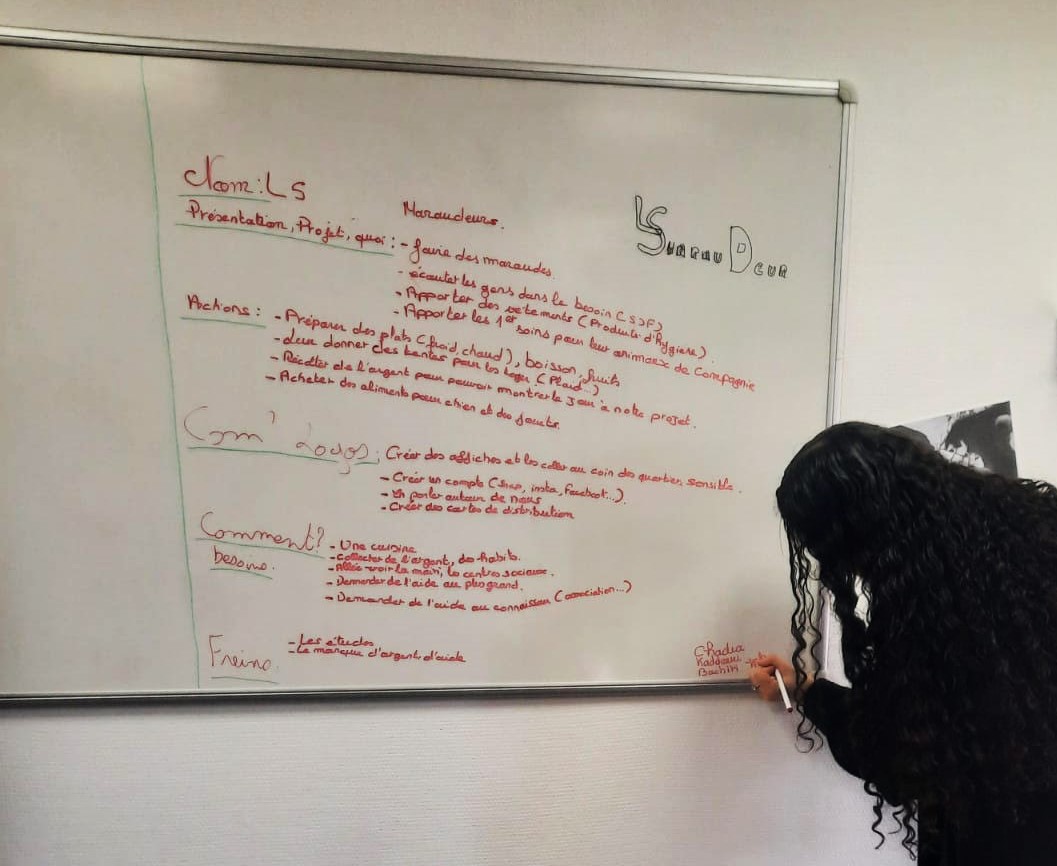 Nom : LS
Maraudeurs.
LS
MARAUDEUR
Présentation, Projet, quoi : - faire des maraudes.
- écouter les gens dans le besoin (SDF)
- Apporter des vêtements (Produits d'hygiene).
- Apporter les 1er soins pour leur animaux de Compagnie
Actions : - Préparer des plats (froid, chaud), boisson, fruits
- leur donner des tentes pour les loger (Plaid...)
- Récolter de l'argent pour pouvoir montrer le jour à notre projet.
- Acheter des aliments pour chien et des jouets.
Com' Logos : Créer des affiches et les coller au coin des quartier sensible.
- Créer un compte (Snap, insta, Facebook...).
- En parler autour de nous
- Créer des cartes de distribution
Comment?
besoins.
- Une cuisine
- Collecter de l'argent, des habits.
- Allée voir la mairi, les centres sociaux.
- Demander de l'aide au plus grand.
- Demander de l'aide au connaissan (association...)
Freins.
- Les études
- Le manque d'argent, d'aide
Radia
Kaddouri